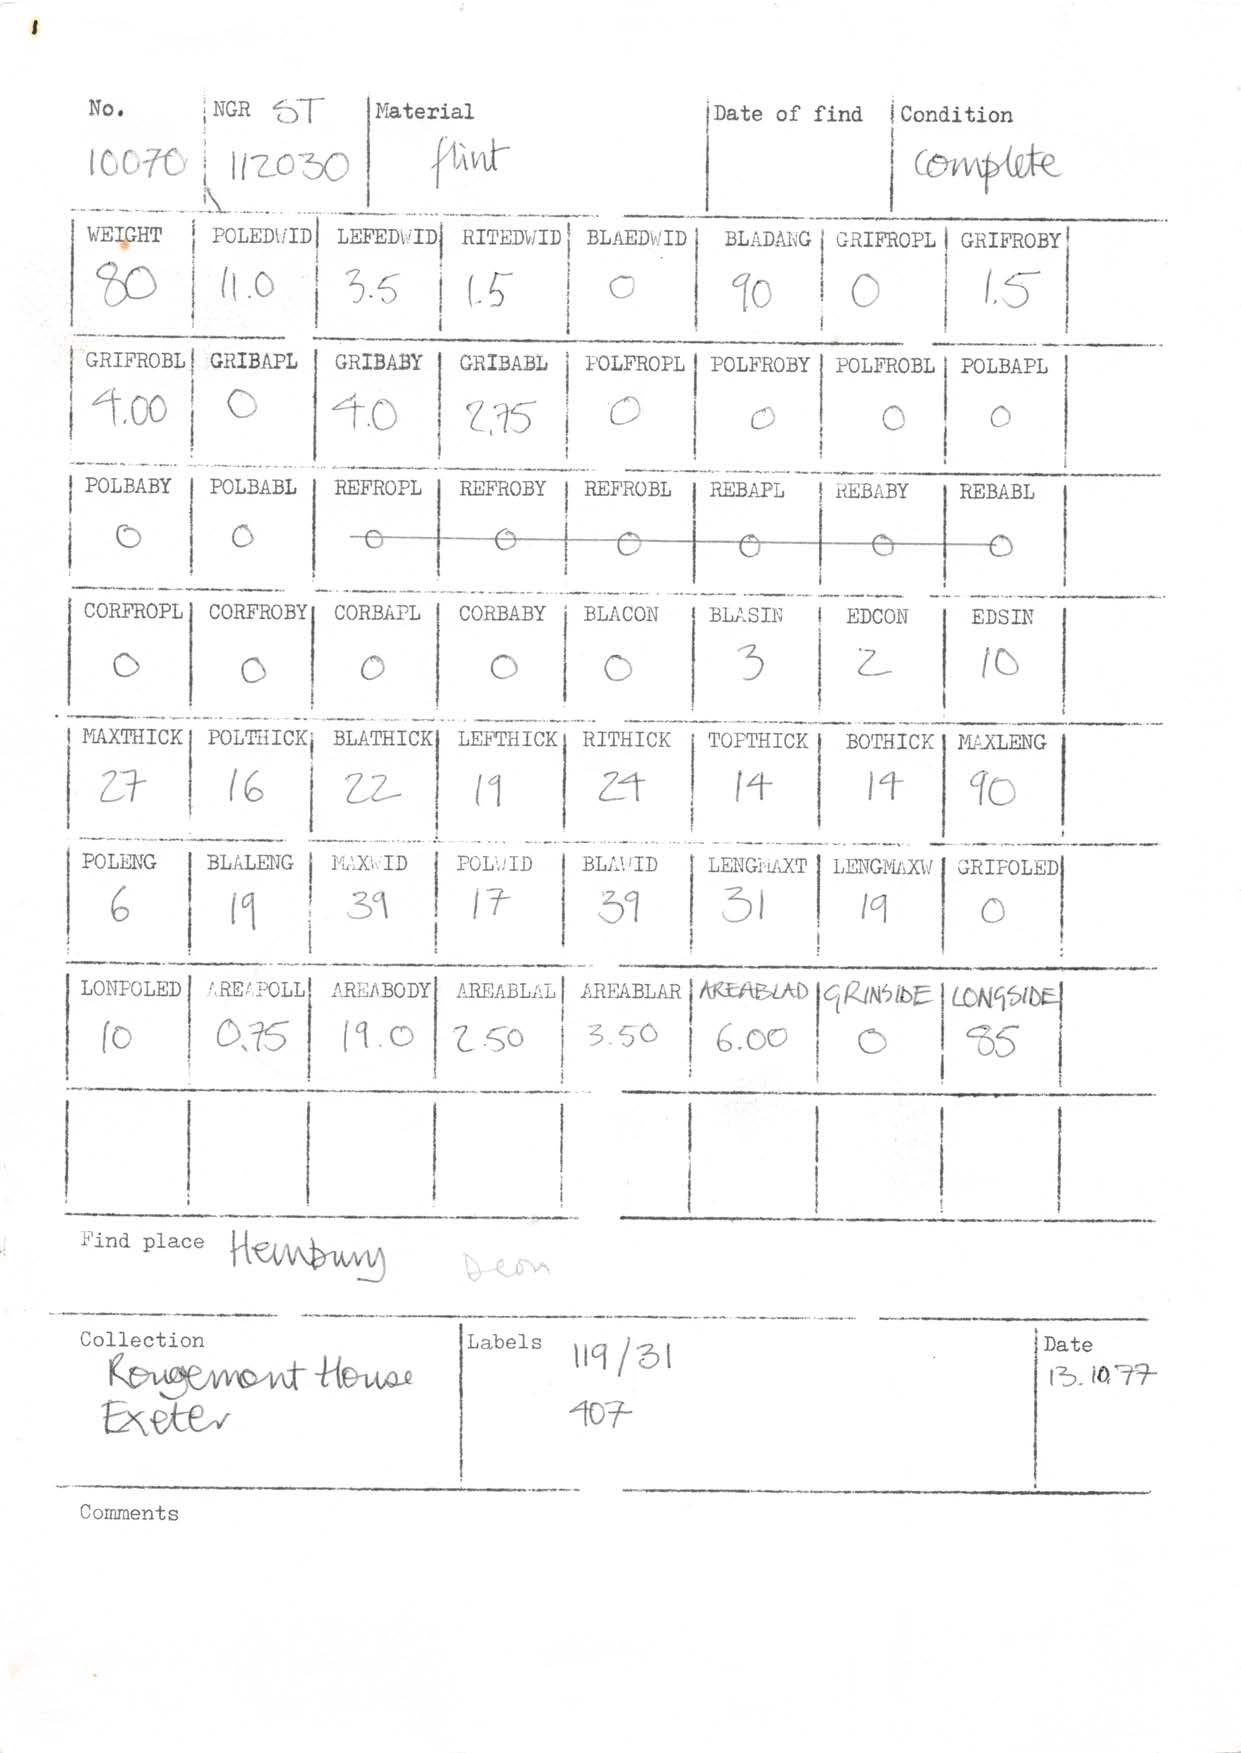 1
No. NGR ST Material Date of find Condition
10070 112030 flint complete
WEIGHT POLEDWID LEFEDWID RITEDWID BLAEDWID BLADANG GRIFROPL GRIFROBY
80 11.0 3.5 1.5 0 90 0 1.5
GRIFROBL GRIBAPL GRIBABY GRIBABL POLFROPL POLFROBY POLFROBL POLBAPL
4.00 0 4.0 2.75 0 0 0 0
POLBABY POLBABL REFROPL REFROBY REFROBL REBAPL REBABY REBABL
0 0 0 0 0 0 0 0
CORFROPL CORFROBY CORBAPL CORBABY BLACON BLASIN EDCON EDSIN
0 0 0 0 0 3 2 10
MAXTHICK POLTHICK BLATHICK LEFTHICK RITHICK TOPTHICK BOTHICK MAXLENG
27 16 22 19 24 14 14 90
POLENG BLALENG MAXWID POLWID BLAWID LENGMAXT LENGMAXW GRIPOLED
6 19 39 17 39 31 19 0
LONPOLED AREAPOLL AREABODY AREABLAL AREABLAR AREABLAD GRINSIDE LONGSIDE
10 0.75 19.0 2.50 3.50 6.00 0 85
Find place Hembury
Collection Labels 119/31 Date
Rougemont House 13.10.77
Exeter 407
Comments